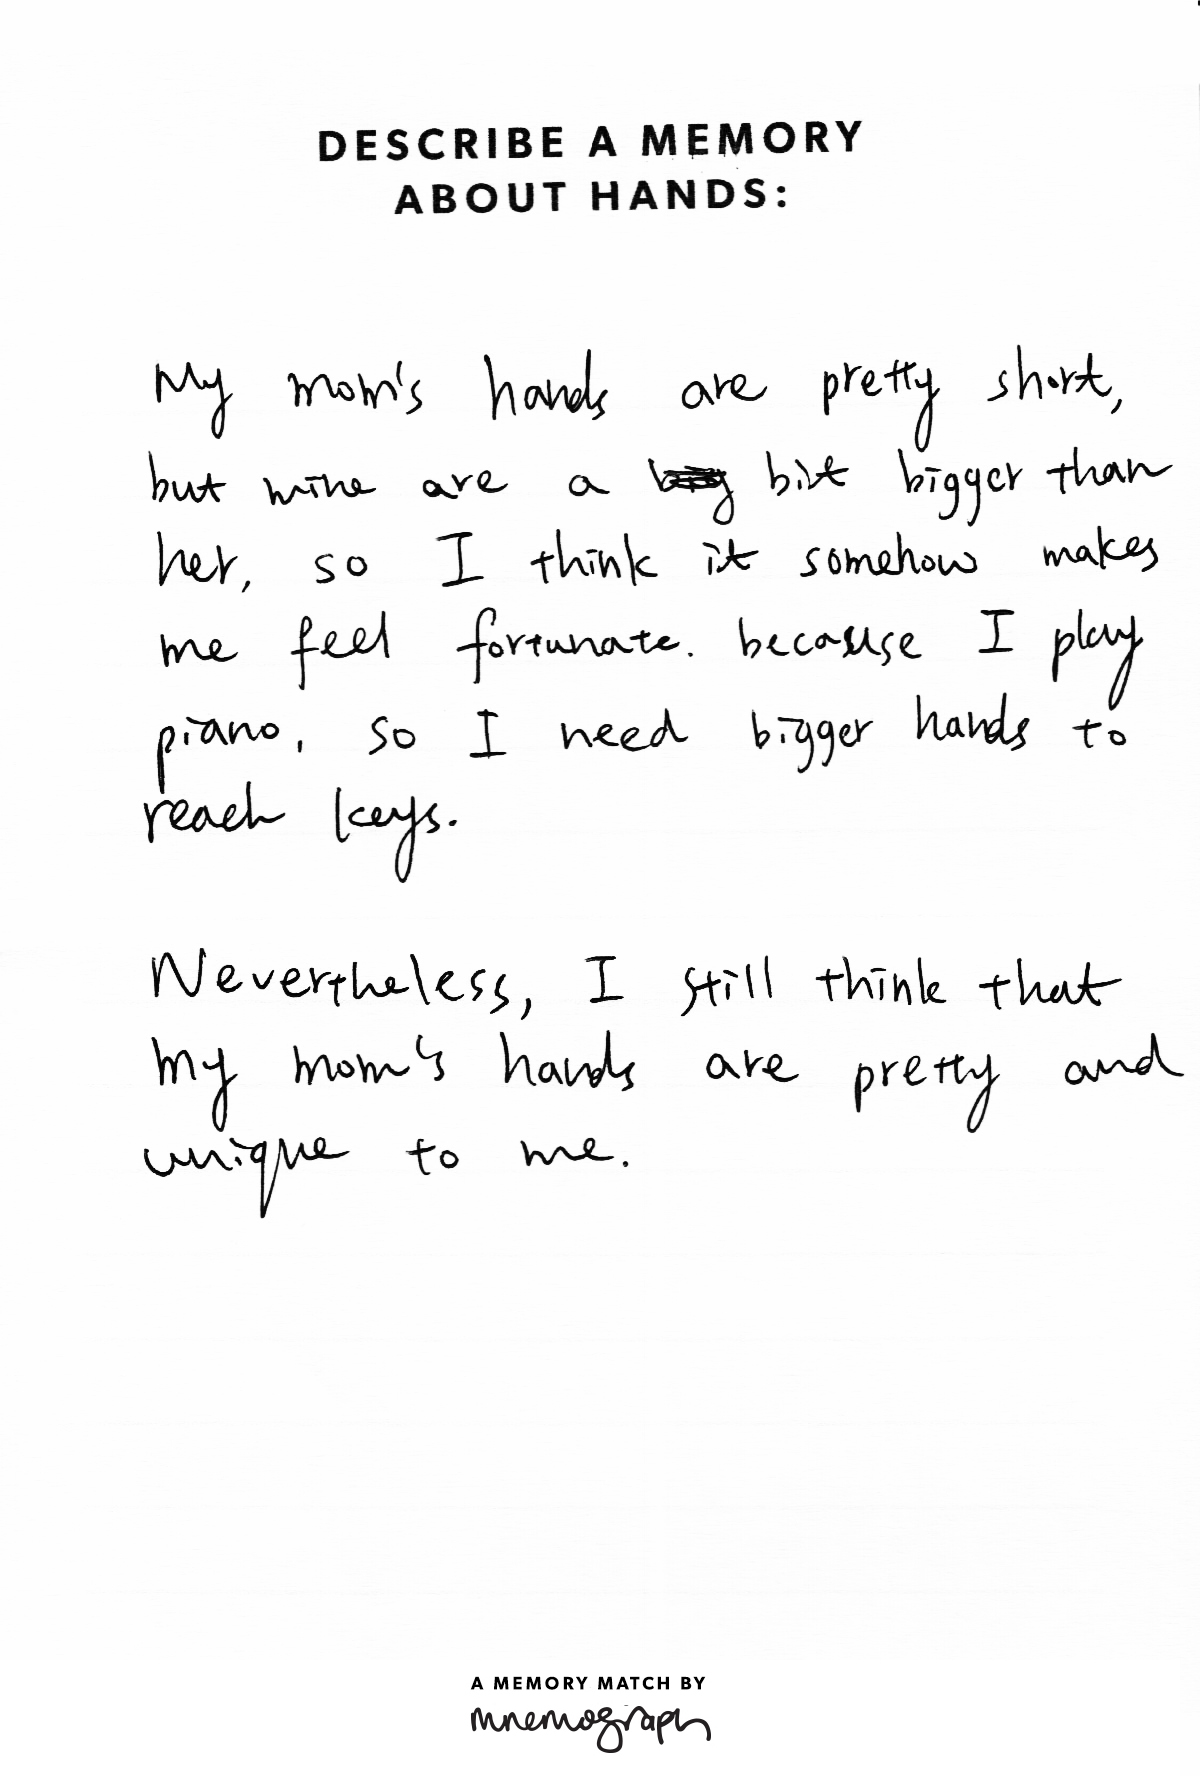 DESCRIBE A MEMORY
ABOUT HANDS:
My mom's hands are pretty short,
but mine are a bit bigger than
her, so I think it somehow makes
me feel fortunate. because I play
piano, so I need bigger hands to
reach keys.
Nevertheless, I still think that
my mom's hands are pretty and
unique to me.
A MEMORY MATCH BY
mnemograph